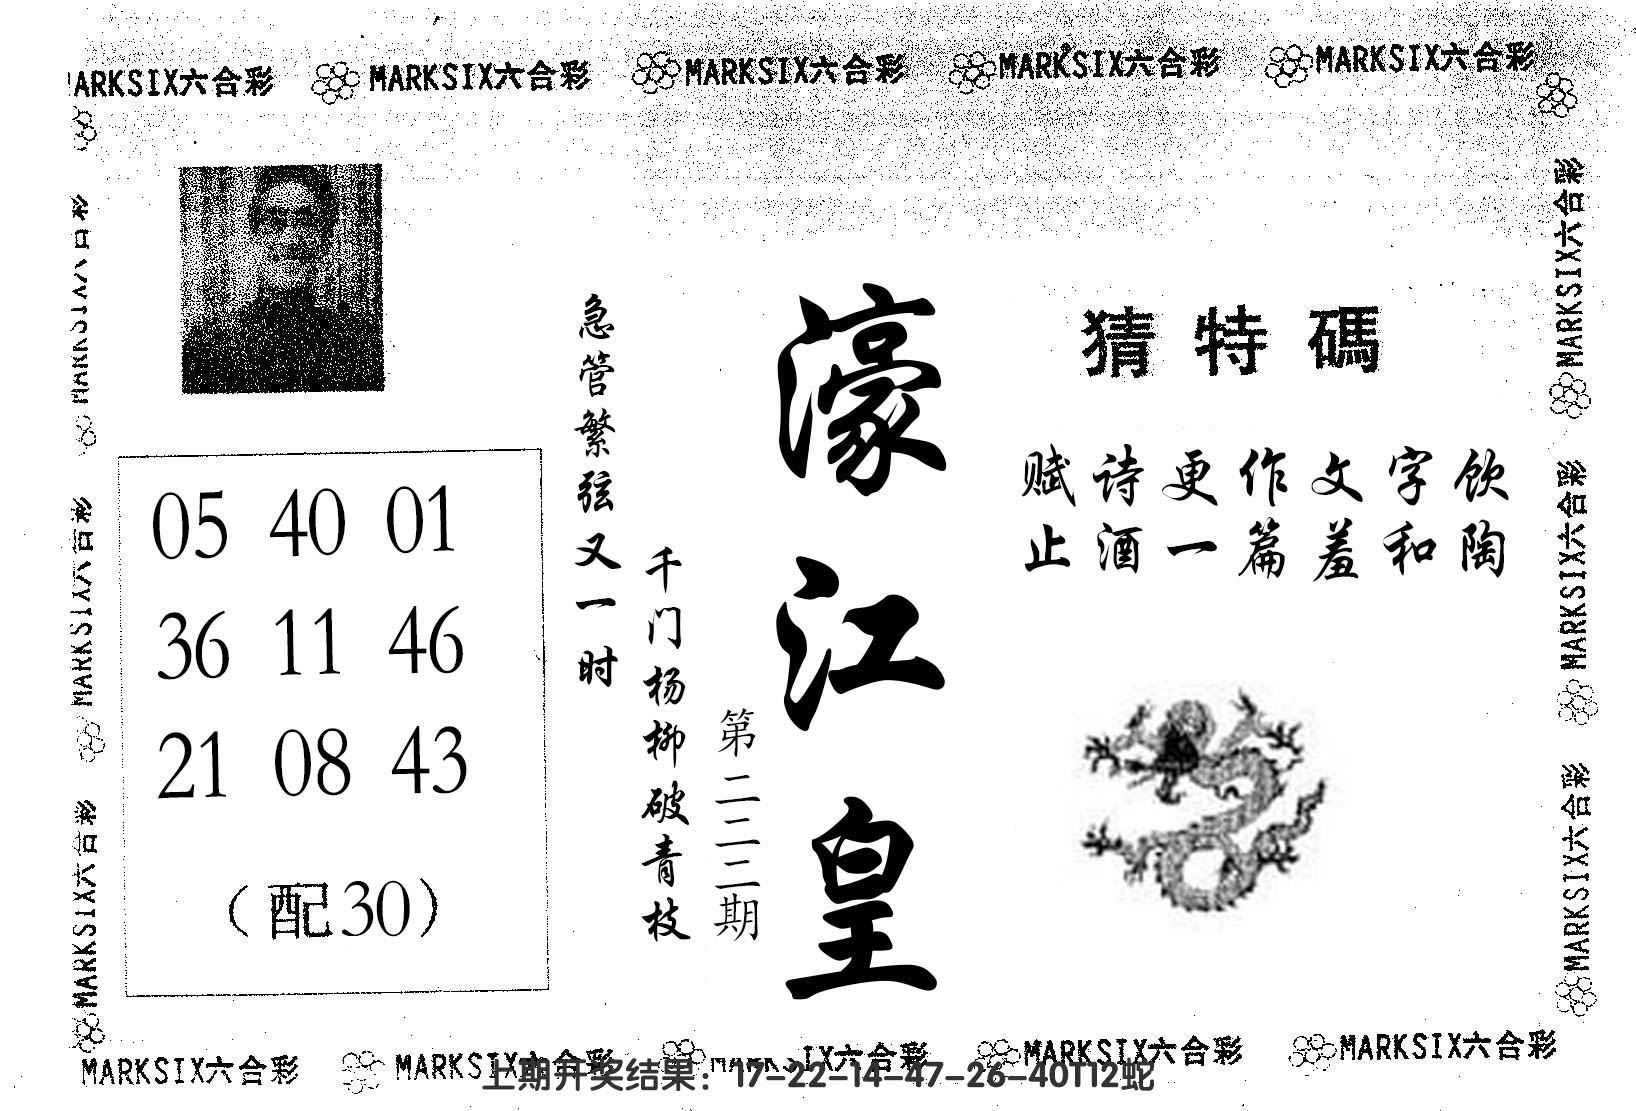 MARKSIX六合彩 MARKSIX六合彩 MARKSIX六合彩 MARKSIX六合彩 MARKSIX六合彩
猜特碼
赋诗更作文字饮
止酒一篇羞和陶
濠江皇
第二二三期
千门杨柳破青枝
急管繁弦又一时
05 40 01
36 11 46
21 08 43
（配30）
MARKSIX六合彩
MARKSIX六合彩
MARKSIX六合彩
MARKSIX六合彩
MARKSIX六合彩
MARKSIX六合彩
MARKSIX六合彩 MARKSIX六合彩 MARKSIX六合彩 MARKSIX六合彩 MARKSIX六合彩
上期开奖结果：17-22-14-47-26-40T12蛇